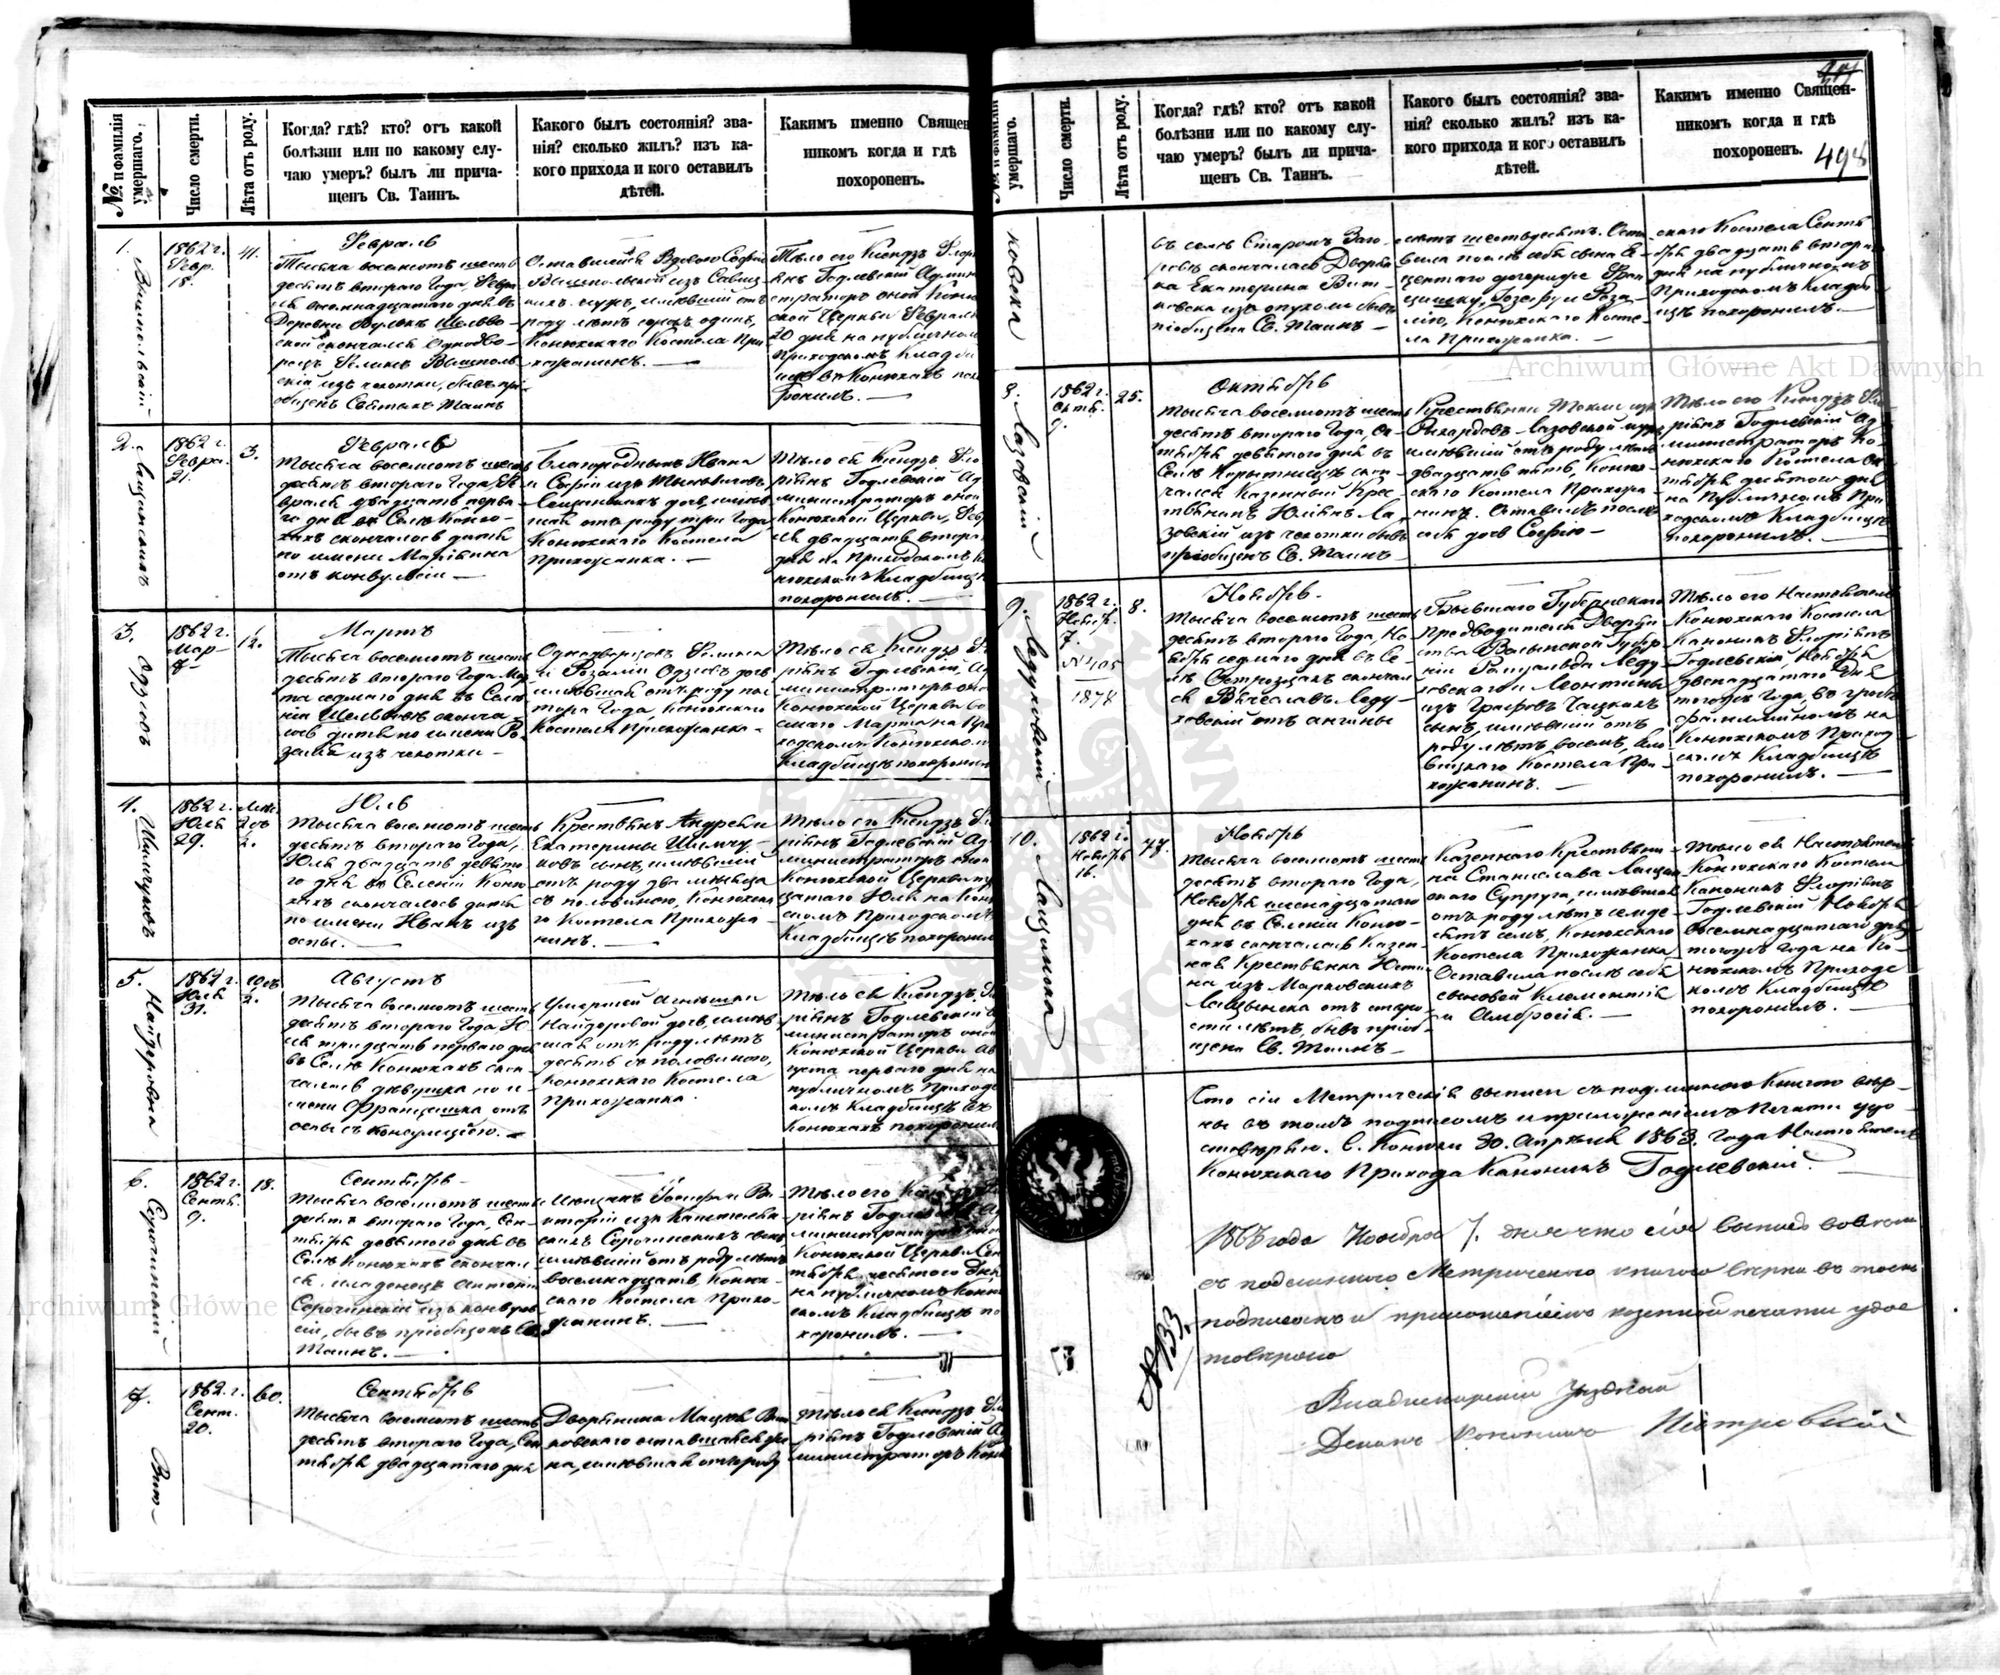 № и фамилія умершаго.
Число смерти.
Лѣта отъ роду.
Когда? гдѣ? кто? отъ какой
болѣзни или по какому слу-
чаю умеръ? былъ ли прича-
щенъ Св. Таинъ.
Какого былъ состоянія? зва-
нія? сколько жилъ? изъ ка-
кого прихода и кого оставилъ
дѣтей.
Какимъ именно Священ
никомъ когда и гдѣ
похороненъ.
1.
1862 г.
Февр.
18.
41.
Февраль
Тысяча восемьсотъ шесть
десятъ втораго Года, Февра
ля осемнадцатаго дня въ
скончался Однодво-
рецъ Феликсъ
скій изъ чахотки, бывъ прі
общенъ Святыхъ Таинъ
роду лѣтъ сорокъ одинъ,
Конюхскаго Костела При
хожанинъ. —
Тѣло его Ксендзъ Флорі
янъ Годлевскій Админи
страторъ оной Коню
ской Церкви Февраля
20 дня на публичномъ
Приходскомъ Кладби
щѣ въ Конюхахъ похо
ронилъ. —
2.
1862 г.
Февра.
21.
3.
Февраль
Тысяча восемьсотъ шесть
десятъ втораго Года, Фе
враля двадцать перва
го дня въ Селѣ Коню-
хахъ скончалось дитя
по имени Маріянна
отъ конвулсіи —
Благородныхъ Ивана
и Софіи изъ
дочь, имѣв
шая отъ роду три Года
Конюхскаго Костела
Прихожанка. —
Тѣло ея Ксендзъ Фло
ріянъ Годлевскій Ад
министраторъ оной
Конюхской Церкви, Февр
ля двадцать втораго
дня на Приходскомъ Ко
нюхскомъ Кладбищѣ
похоронилъ. —
3.
Одзіовъ
1862 г.
Мар
8
1½.
Мартъ
Тысяча восемьсотъ шесть
десятъ втораго Года Мар
та седмаго дня въ Селе
ніи Шельвовѣ сконча
лось дитя по имени Ро
залія изъ чахотки —
Однодворцовъ Феликса
и Розаліи Одзіовъ дочь
имѣвшая отъ роду пол
тора Года, Конюхскаго
Костела Прихожанка —
Тѣло ея Ксендзъ Фло
ріянъ Годлевскій, Ад
министраторъ оной
Конюхской Церкви во
смаго Марта на При
ходскомъ Конюхскомъ
Кладбищѣ похоронилъ
4.
Шимчуковъ
1862 г.
Юля
29.
Юль
Тысяча восемьсотъ шесть
десятъ втораго Года,
Юля двадцать девята
го дня въ Селеніи Коню
хахъ скончалось дитя
по имени Иванъ изъ
оспы. —
Крестьянъ Андрея и
Екатерины Шимчу-
ковъ сынъ, имѣвшій
отъ роду два мѣсяца
съ половиною, Конюхска
го Костела Прихожа-
нинъ. —
Тѣло его Ксендзъ Фло
ріянъ Годлевскій Ад
министраторъ оной
Конюхской Церкви три
цатаго Юля на Коню
скомъ Приходскомъ
Кладбищѣ похоронилъ
5.
Найдеровна
1862 г.
Юля
31.
Августъ
Тысяча восемьсотъ шесть
десятъ втораго Года Ю
ля тридцать перваго дня
въ Селѣ Конюхахъ скон
чалась дѣвушка по и
мени Францишка отъ
оспы съ конвулсіею. —
Умершей
Найдеровой дочь, имѣв
шая отъ роду лѣтъ
десять съ половиною,
Конюхскаго Костела
Прихожанка.
Тѣло ея Ксендзъ Фло
ріянъ Годлевскій Ад
министраторъ оной
Конюхской Церкви Ав
густа перваго дня на
публичномъ Приходс
комъ Кладбищѣ въ
Конюхахъ похоронилъ
6.
Сорочинскій
1862 г.
Сентя.
9.
18.
Сентябрь
Тысяча восемьсотъ шесть
десятъ втораго Года, Сен
тября девятаго дня въ
Селѣ Конюхахъ скончал
ся младенецъ Антоній
Сорочинскій изъ конвул
сіи, бывъ пріобщенъ Св.
Таинъ. —
скихъ Сорочинскихъ сынъ
имѣвшій отъ роду лѣтъ
восемнадцать, Конюх-
скаго Костела Прихо-
жанинъ. —
Тѣло его Ксендзъ Фло
ріянъ Годлевскій Ад
министраторъ оной
Конюхской Церкви Сен
тября десятаго дня
на публичномъ Коню
скомъ Кладбищѣ по
хоронилъ. —
7.
Вит-
1862 г.
Сент.
20.
60.
Сентябрь
Тысяча восемьсотъ шесть
десятъ втораго Года, Сен
тября двадцатаго дня
Тѣло ея Ксендзъ Фло
ріянъ Годлевскій Ад
министраторъ Конюх
498
№ и фамилія умершаго.
Число смерти.
Лѣта отъ роду.
Когда? гдѣ? кто? отъ какой
болѣзни или по какому слу-
чаю умеръ? былъ ли прича-
щенъ Св. Таинъ.
Какого былъ состоянія? зва-
нія? сколько жилъ? изъ ка-
кого прихода и кого оставилъ
дѣтей.
Какимъ именно Священ-
никомъ когда и гдѣ
похороненъ.
ковска
въ селѣ Старомъ Заго-
ровѣ скончалась Дворян
ка Екатерина Вит-
ковска изъ опухоли бывъ
пріобщена Св. Таинъ —
лѣтъ шестьдесятъ. Оста
вила послѣ себя сына
лію, Конюхскаго Косте-
ла Прихожанка. —
скаго Костела Сентя
бря двадцать втораго
дня на публичномъ
Приходскомъ Кладби
щѣ похоронилъ. —
8.
Лазовскій
1862 г.
Октя.
9.
25.
Октябрь
Тысяча восемьсотъ шесть
десятъ втораго Года, Ок-
тября девятаго дня въ
Селѣ Корытницѣ скон
чался Казенный Крес-
тьянинъ Юліянъ Ла-
зовскій изъ чахотки бывъ
пріобщенъ Св. Таинъ —
имѣвшій отъ роду лѣтъ
двадцать пять, Конюх-
скаго Костела Прихожа
нинъ. Оставилъ послѣ
себя дочь Софію —
Тѣло его Ксендзъ Фло
ріянъ Годлевскій Ад
министраторъ Ко-
нюхскаго Костела Ок
тября десятаго дня
на Публичномъ При
ходскомъ Кладбищѣ
похоронилъ. —
9.
Ледуховскій
1862 г.
Ноябр.
7.
N 405
1878
8.
Ноябрь.
Тысяча восемьсотъ шесть
десятъ втораго Года, Но
ября седмаго дня въ Се
лѣ Острожцахъ скончал
ся Вячеславъ Леду-
ховскій отъ ангины
Бывшаго Губернскаго
Предводителя Дворян
ства Волынской Губер
ніи Ромуальда Леду
ховскаго и Леонтины
изъ Графовъ
сынъ, имѣвшій отъ
роду лѣтъ восемь,
Костела При-
хожанинъ. —
Тѣло его Настоятель
Конюхскаго Костела
Каноникъ Флоріянъ
Годлевскій, Ноября
двенадцатаго дня
тогожъ Года, въ гробѣ
фамилійномъ на
Конюхскомъ Приход
скомъ Кладбищѣ
похоронилъ. —
10.
Лащинска
1862 г.
Ноября
16.
77.
Ноябрь
Тысяча восемьсотъ шесть
десятъ втораго Года,
Ноября шенадцатаго
дня въ Селеніи Коню-
хахъ скончалась Казен
ная Крестьянка Юсти
на изъ Марковскихъ
Лащынска отъ старо
сти лѣтъ, бывъ пріоб
щена Св. Таинъ —
Казеннаго Крестьяни
на Станислава Лащин
скаго Супруга, имѣвшая
отъ роду лѣтъ семде-
сятъ семъ, Конюхскаго
Костела Прихожанка
Оставила послѣ себя
сыновей Климентія
и Амбросія. —
Тѣло ея Настоятель
Конюхскаго Костела
Каноникъ Флоріянъ
Годлевскій Ноября
восемнадцатаго дня
тогожъ Года на Ко-
нюхскомъ Приходс
комъ Кладбищѣ
похоронилъ. —
Что сіи Метрическія выписи съ подлинною Книгою вѣр-
ны въ томъ подписомъ и приложеніемъ Печати удо-
стовѣряю. С. Конюхи 30. Апрѣля 1863. Года Настоятель
Конюхскаго Прихода Каноникъ Годлевскій.
Ноября 7. дня что сія выпись во всемъ
съ подлинною Метрическою книгою вѣрна въ томъ
подписомъ и приложеніемъ казенной печати удос
товѣряю
№ 133.
Владимирскій Уѣздный
Деканъ Каноникъ
Archiwum Główne Akt Dawnych
Archiwum Główne Akt Dawnych